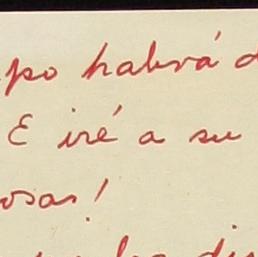 po habrá d
E iré a su
osas!